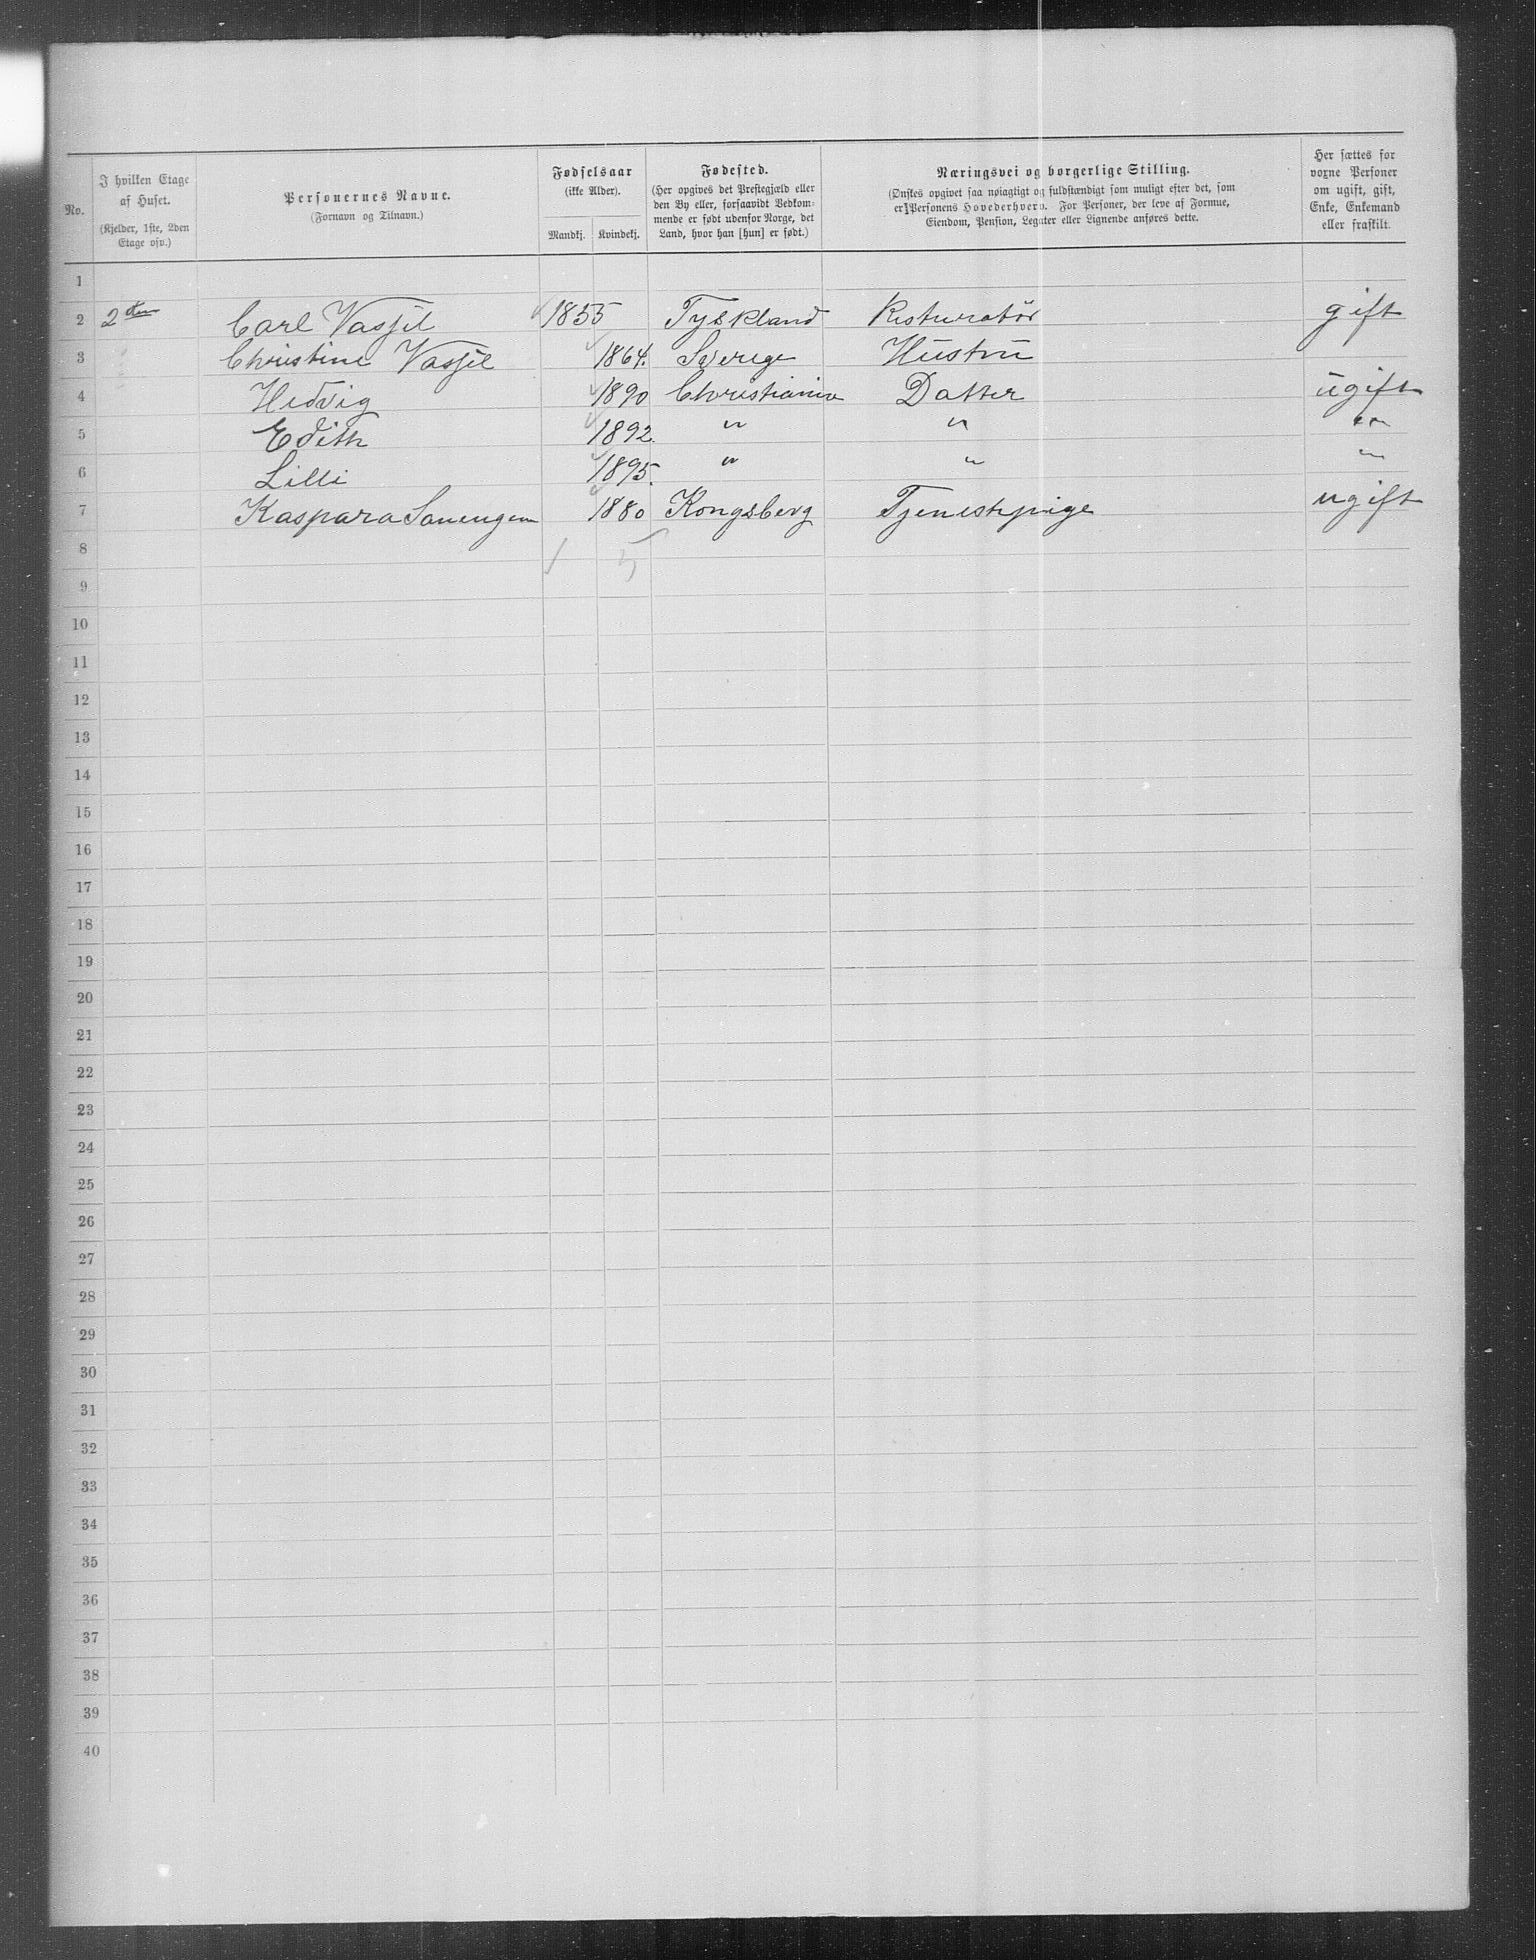 No.
I hvilken Etage af Huset.
(Kjelder, 1ste, 2den Etage osv.)
Personernes Navne.
(Fornavn og Tilnavn.)
Fødselsaar
(ikke Alder).
Mandkj. Kvindekj.
Fødested.
(Her opgives det Præstegjæld eller
den By eller, forsaavidt Vedkom-
mende er født udenfor Norge, det
Land, hvor han [hun] er født.)
Næringsvei og borgerlige Stilling.
(Ønskes opgivet saa nøiagtigt og fuldstændigt som muligt efter det, som
er Personens Hovederhverv. For Personer, der leve af Formue,
Eiendom, Pension, Legater eller Lignende anføres dette.
Her sættes for
voxne Personer
om ugift, gift,
Enke, Enkemand
eller fraskilt.
1
2 2den Carl Vassjel 1855 Tyskland Risturatör gift
3 Christine Vassjel 1864. Sverege Hustru
4 Hedvig 1890 Christiania Datter ugift
5 Edith 1892. " " "
6 Lilli 1895. " " "
7 Kaspara 1880 Kongsberg Tjenestepige ugift
8 1 5
9
10
11
12
13
14
15
16
17
18
19
20
21
22
23
24
25
26
27
28
29
30
31
32
33
34
35
36
37
38
39
40